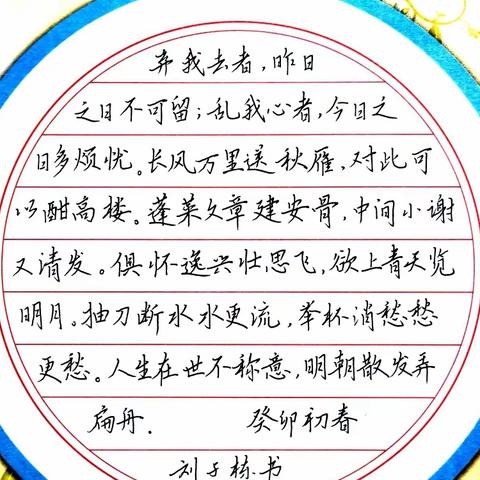 弃我去者,昨日
之日不可留;乱我心者,今日之
日多烦忧。长风万里送秋雁,对此可
以酣高楼。蓬莱文章建安骨,中间小谢
又清发。俱怀逸兴壮思飞,欲上青天览
明月。抽刀断水水更流,举杯消愁愁
更愁。人生在世不称意,明朝散发弄
扁舟.
癸卯初春
刘子栋书